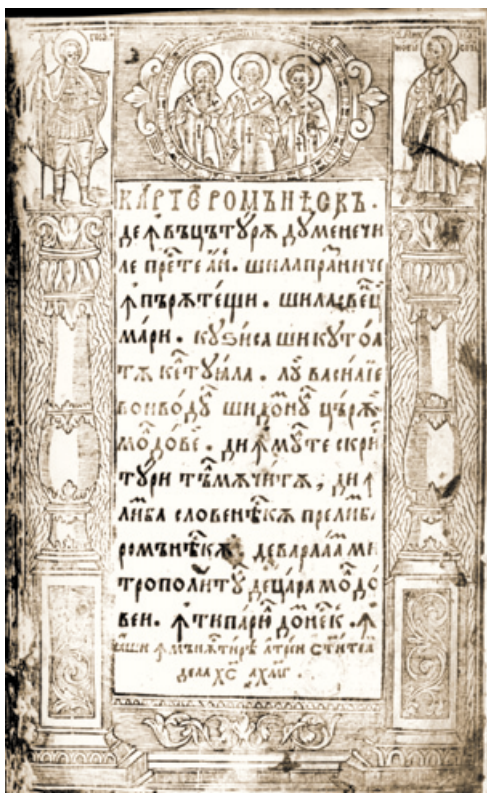 КАРТЕ РОМЪНѢСКЪ.
де ꙟвъцътꙋрѫ дꙋменечи
ле прⷭ҇те а҃н. ши ла праꙁниче
ꙟпърѫтещи. ши ла
мари. кꙋ ѕиса ши кꙋ тоа
тѫ келтꙋꙗла. лꙋ василїе
воивѡдꙋл ши домнꙋл църѫй
молдовей. дин мꙋлте скрип
тꙋри тълмѫчитѫ, дин
лимба словенѣскѫ пре лимба
ромънѣскѫ. де варлаам ми
трополитꙋл де цара молдо
вен. ꙟ типарюл домнеск. ꙟ
ꙟ мънѫстирѣ а трей
дела х҃с ҂ахмг.